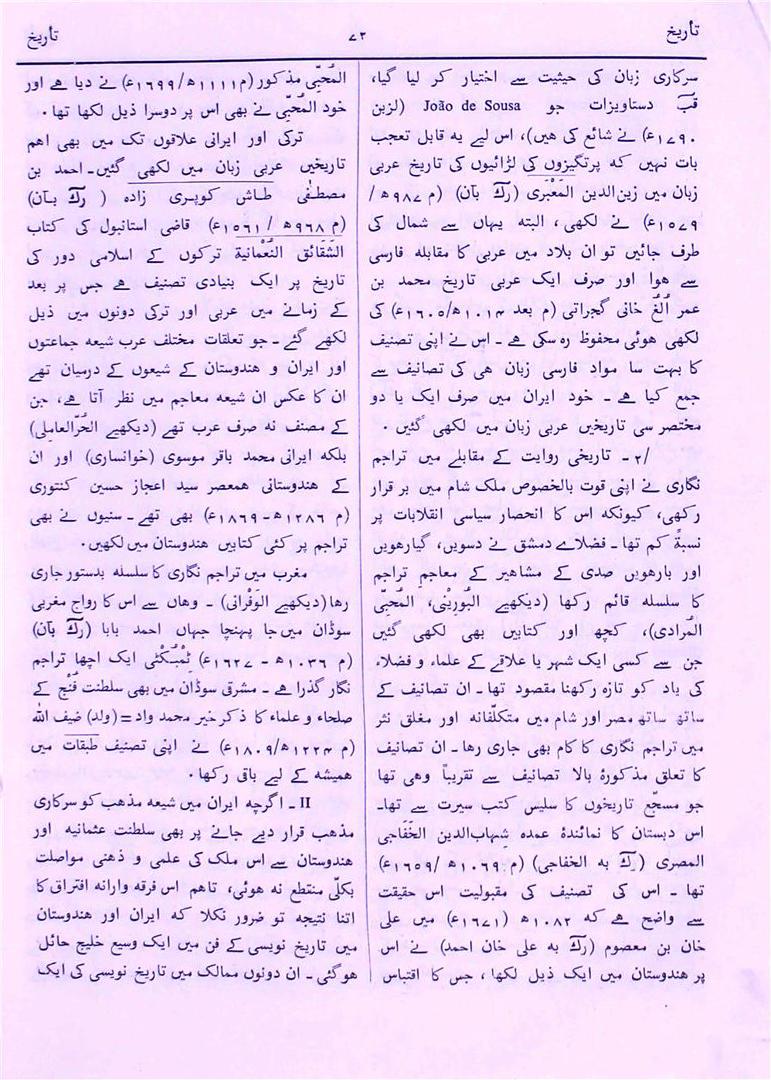 تأریخ
۷۳
تأریخ
سرکاری زبان کی حیثیت سے اختیار کر لیا گیا،
قبَ دستاویزات جو João de Sousa (لزبن
۱۷۹۰ء) نے شائع کی هیں)، اس لیے یه قابل تعجب
بات نہیں که پرتگیزوں کی لڑائیوں کی تاریخ عربی
زبان میں زین‌الدین المَعْبَری (رکّ بآن) (م ۹۸۷ھ/
۱۵۷۹ء) نے لکھی، البته یہاں سے شمال کی
طرف جائیں تو ان بلاد میں عربی کا مقابله فارسی
سے هوا اور صرف ایک عربی تاریخ محمد بن
عمر اُلُغ خانی گجراتی (م بعد ۱۰۱۴ھ/۱۶۰۵ء) کی
لکھی هوئی محفوظ ره سکی هے ـ اس نے اپنی تصنیف
کا بہت سا مواد فارسی زبان هی کی تصانیف سے
جمع کیا هے ـ خود ایران میں صرف ایک یا دو
مختصر سی تاریخیں عربی زبان میں لکھی گئیں ۰
۲/ ـ تاریخی روایت کے مقابلے میں تراجم
نگاری نے اپنی قوت بالخصوص ملک شام میں بر قرار
رکھی، کیونکه اس کا انحصار سیاسی انقلابات پر
نسبةً کم تھا ـ فضلاے دمشق نے دسویں، گیارھویں
اور بارھویں صدی کے مشاھیر کے معاجم تراجم
کا سلسله قائم رکھا (دیکھیے البُورِیْنی، المُحِبّی
المُرادی)، کچھ اور کتابیں بھی لکھی گئیں
جن سے کسی ایک شہر یا علاقے کے علماء و فضلاء
کی یاد کو تازه رکھنا مقصود تھا ـ ان تصانیف کے
ساتھ ساتھ مصر اور شام میں متکلّفانه اور مغلق نثر
میں تراجم نگاری کا کام بھی جاری رھا ـ ان تصانیف
کا تعلق مذکورۂ بالا تصانیف سے تقریباً وھی تھا
جو مسجّع تاریخوں کا سلیس کتب سیرت سے تھاـ
اس دبستان کا نمائندۂ عمده شِہاب‌الدین الخَفاجی
المصری (رکّ به الخفاجی) (م ۱۰۶۹ھ /۱۶۵۹ء)
تھا ـ اس کی تصنیف کی مقبولیت اس حقیقت
سے واضح هے که ۱۰۸۲ھ (۱۶۷۱ء) میں علی
خان بن معصوم (رکّ به علی خان احمد) نے اس
پر هندوستان میں ایک ذیل لکھا، جس کا اقتباس
المُحِبّی مذکور (م ۱۱۱۱ھ/۱۶۹۹ء) نے دیا هے اور
خود المُحِبّی نے بھی اس پر دوسرا ذیل لکھا تھا ۰
ترکی اور ایرانی علاقوں تک میں بھی اهم
تاریخیں عربی زبان میں لکھی گئیں ـ احمد بن
مصطفٰی طاش کوپری زاده (رکّ بآن)
(م ۹۶۸ھ /۱۵۶۱ء) قاضی استانبول کی کتاب
الشَقائق النُعْمانیة ترکوں کے اسلامی دور کی
تاریخ پر ایک بنیادی تصنیف هے جس پر بعد
کے زمانے میں عربی اور ترکی دونوں میں ذیل
لکھے گئے ـ جو تعلقات مختلف عرب شیعه جماعتوں
اور ایران و هندوستان کے شیعوں کے درمیان تھے
ان کا عکس ان شیعه معاجم میں نظر آتا هے، جن
کے مصنف نه صرف عرب تھے (دیکھیے الحُرّ العاملی)
بلکه ایرانی محمد باقر موسوی (خوانساری) اور ان
کے هندوستانی همعصر سید اعجاز حسین کنتوری
(م ۱۲۸۶ھ-۱۸۶۹ء) بھی تھے ـ سنیوں نے بھی
تراجم پر کئی کتابیں هندوستان میں لکھیں۰
مغرب میں تراجم نگاری کا سلسله بدستور جاری
رها (دیکھیے الوَفْرانی) ـ وهاں سے اس کا رواج مغربی
سوڈان میں جا پہنچا جہاں احمد بابا (رکّ بآن)
(م ۱۰۳۶ھ - ۱۶۲۷ء) ٹمبکٹی ایک اچھا تراجم
نگار گذرا هے ـ مشرق سوڈان میں بھی سلطنت فُنْج کے
صلحاء و علماء کا ذکر خیر محمد واد = (ولد) ضیف الله
(م ۱۲۲۴ھ/۱۸۰۹ء) نے اپنی تصنیف طبقات میں
همیشه کے لیے باقی رکھا ۰
II ـ اگرچه ایران میں شیعه مذهب کو سرکاری
مذهب قرار دیے جانے پر بھی سلطنت عثمانیه اور
هندوستان سے اس ملک کی علمی و ذهنی مواصلت
بکلّی منقطع نه هوئی، تاهم اس فرقه وارانه افتراق کا
اتنا نتیجه تو ضرور نکلا که ایران اور هندوستان
میں تاریخ نویسی کے فن میں ایک وسیع خلیج حائل
هوگئی ـ ان دونوں ممالک میں تاریخ نویسی کی ایک